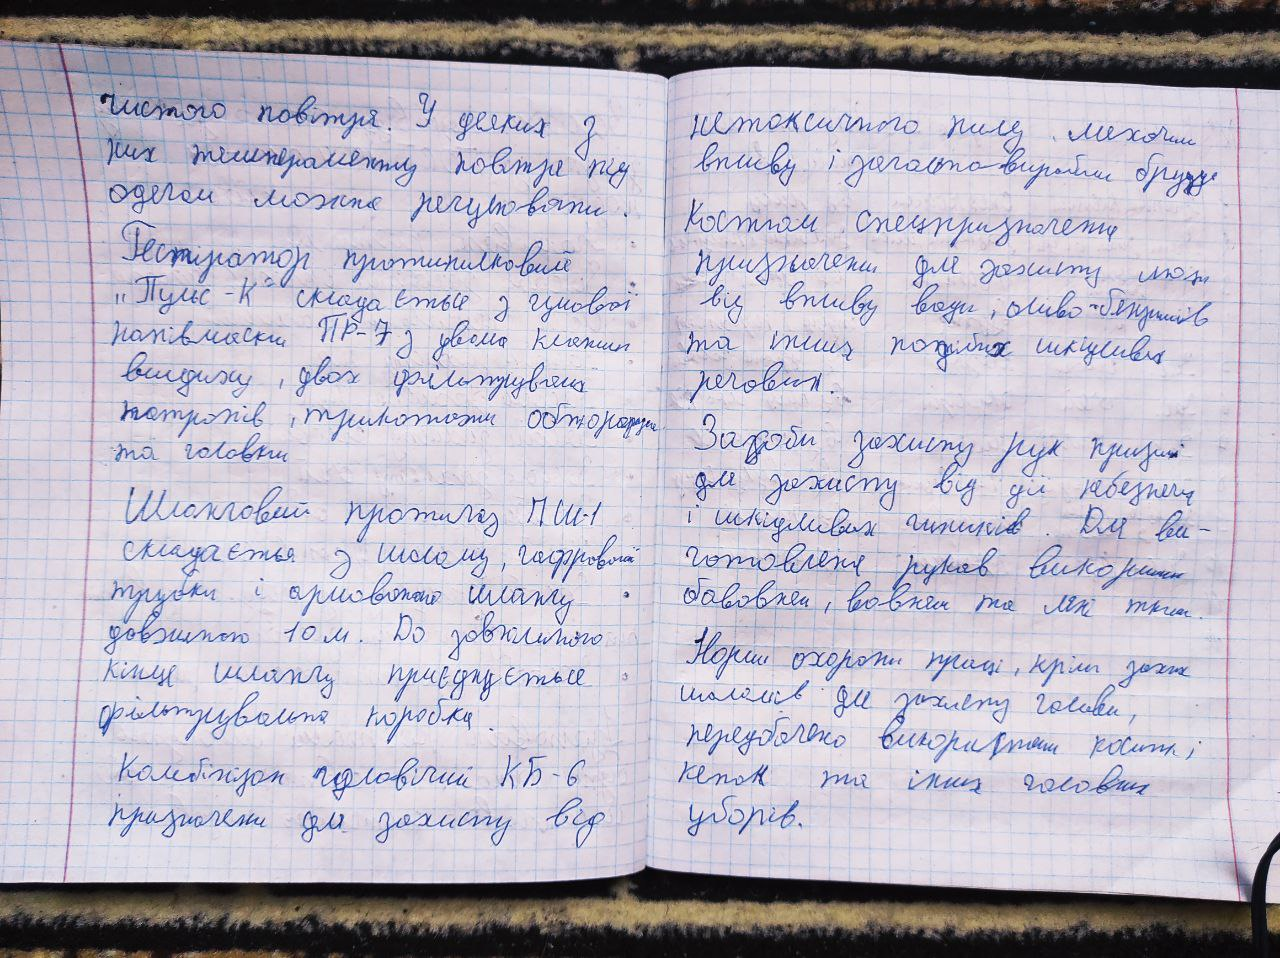 чистого повітря. У деяких з
них температуру повітря під
одягом можна регулювати.
Респіратор протипиловий
„Пульс-К" складається з гумової
напівмаски ПР-7 з двома клапанами
видиху, двох фільтрувальних
патронів, трикотажн обтюратора
та головки
Шланговий протигаз ПШ-1
складається з шолому, гофрованої
трубки і армованого шлангу
довжиною 10 м. До зовнішнього
кінця шлангу приєднується
фільтрувальна коробка.
Комбінізон чоловічий КБ-6
призначени для захисту від
нетоксичного пилу механічн
впливу і загально виробни бруду
Костюм спецпризначення
призначени для захисту люди
від впливу води, оливо-бензинів
та інших подібних шкідливих
речовин.
Засоби захисту рук призна
для захисту від дії небезпечн
і шкідливих чиників. Для ви-
готовленя рукав викорис
бавовнян, вовнян та лян ткан.
Норми охорони праці, крім захис
шоломів для захисту голови,
передбачено використан косинк і
кепок та інших головних
уборів.